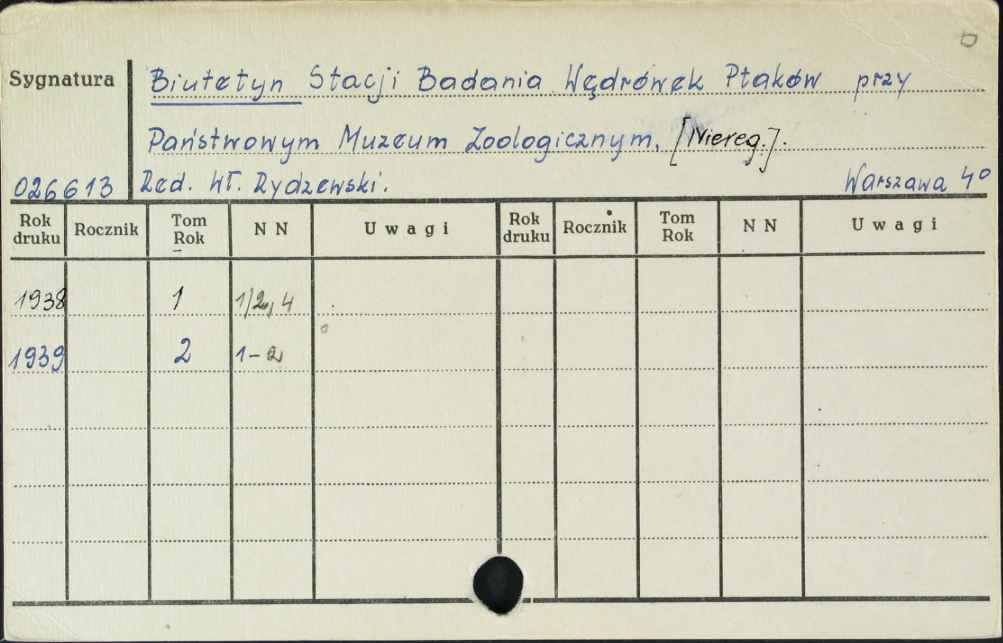 Sygnatura Biuletyn Stacji Badania Wędrówek Ptaków przy
Państwowym Muzeum Zoologicznym. [Niereg.].
026613 Red. Wł. Rydzewski. Warszawa 4°
Rok druku Rocznik Tom Rok N N Uwagi Rok druku Rocznik Tom Rok N N Uwagi
1938 1 1/2, 4
1939 2 1-2